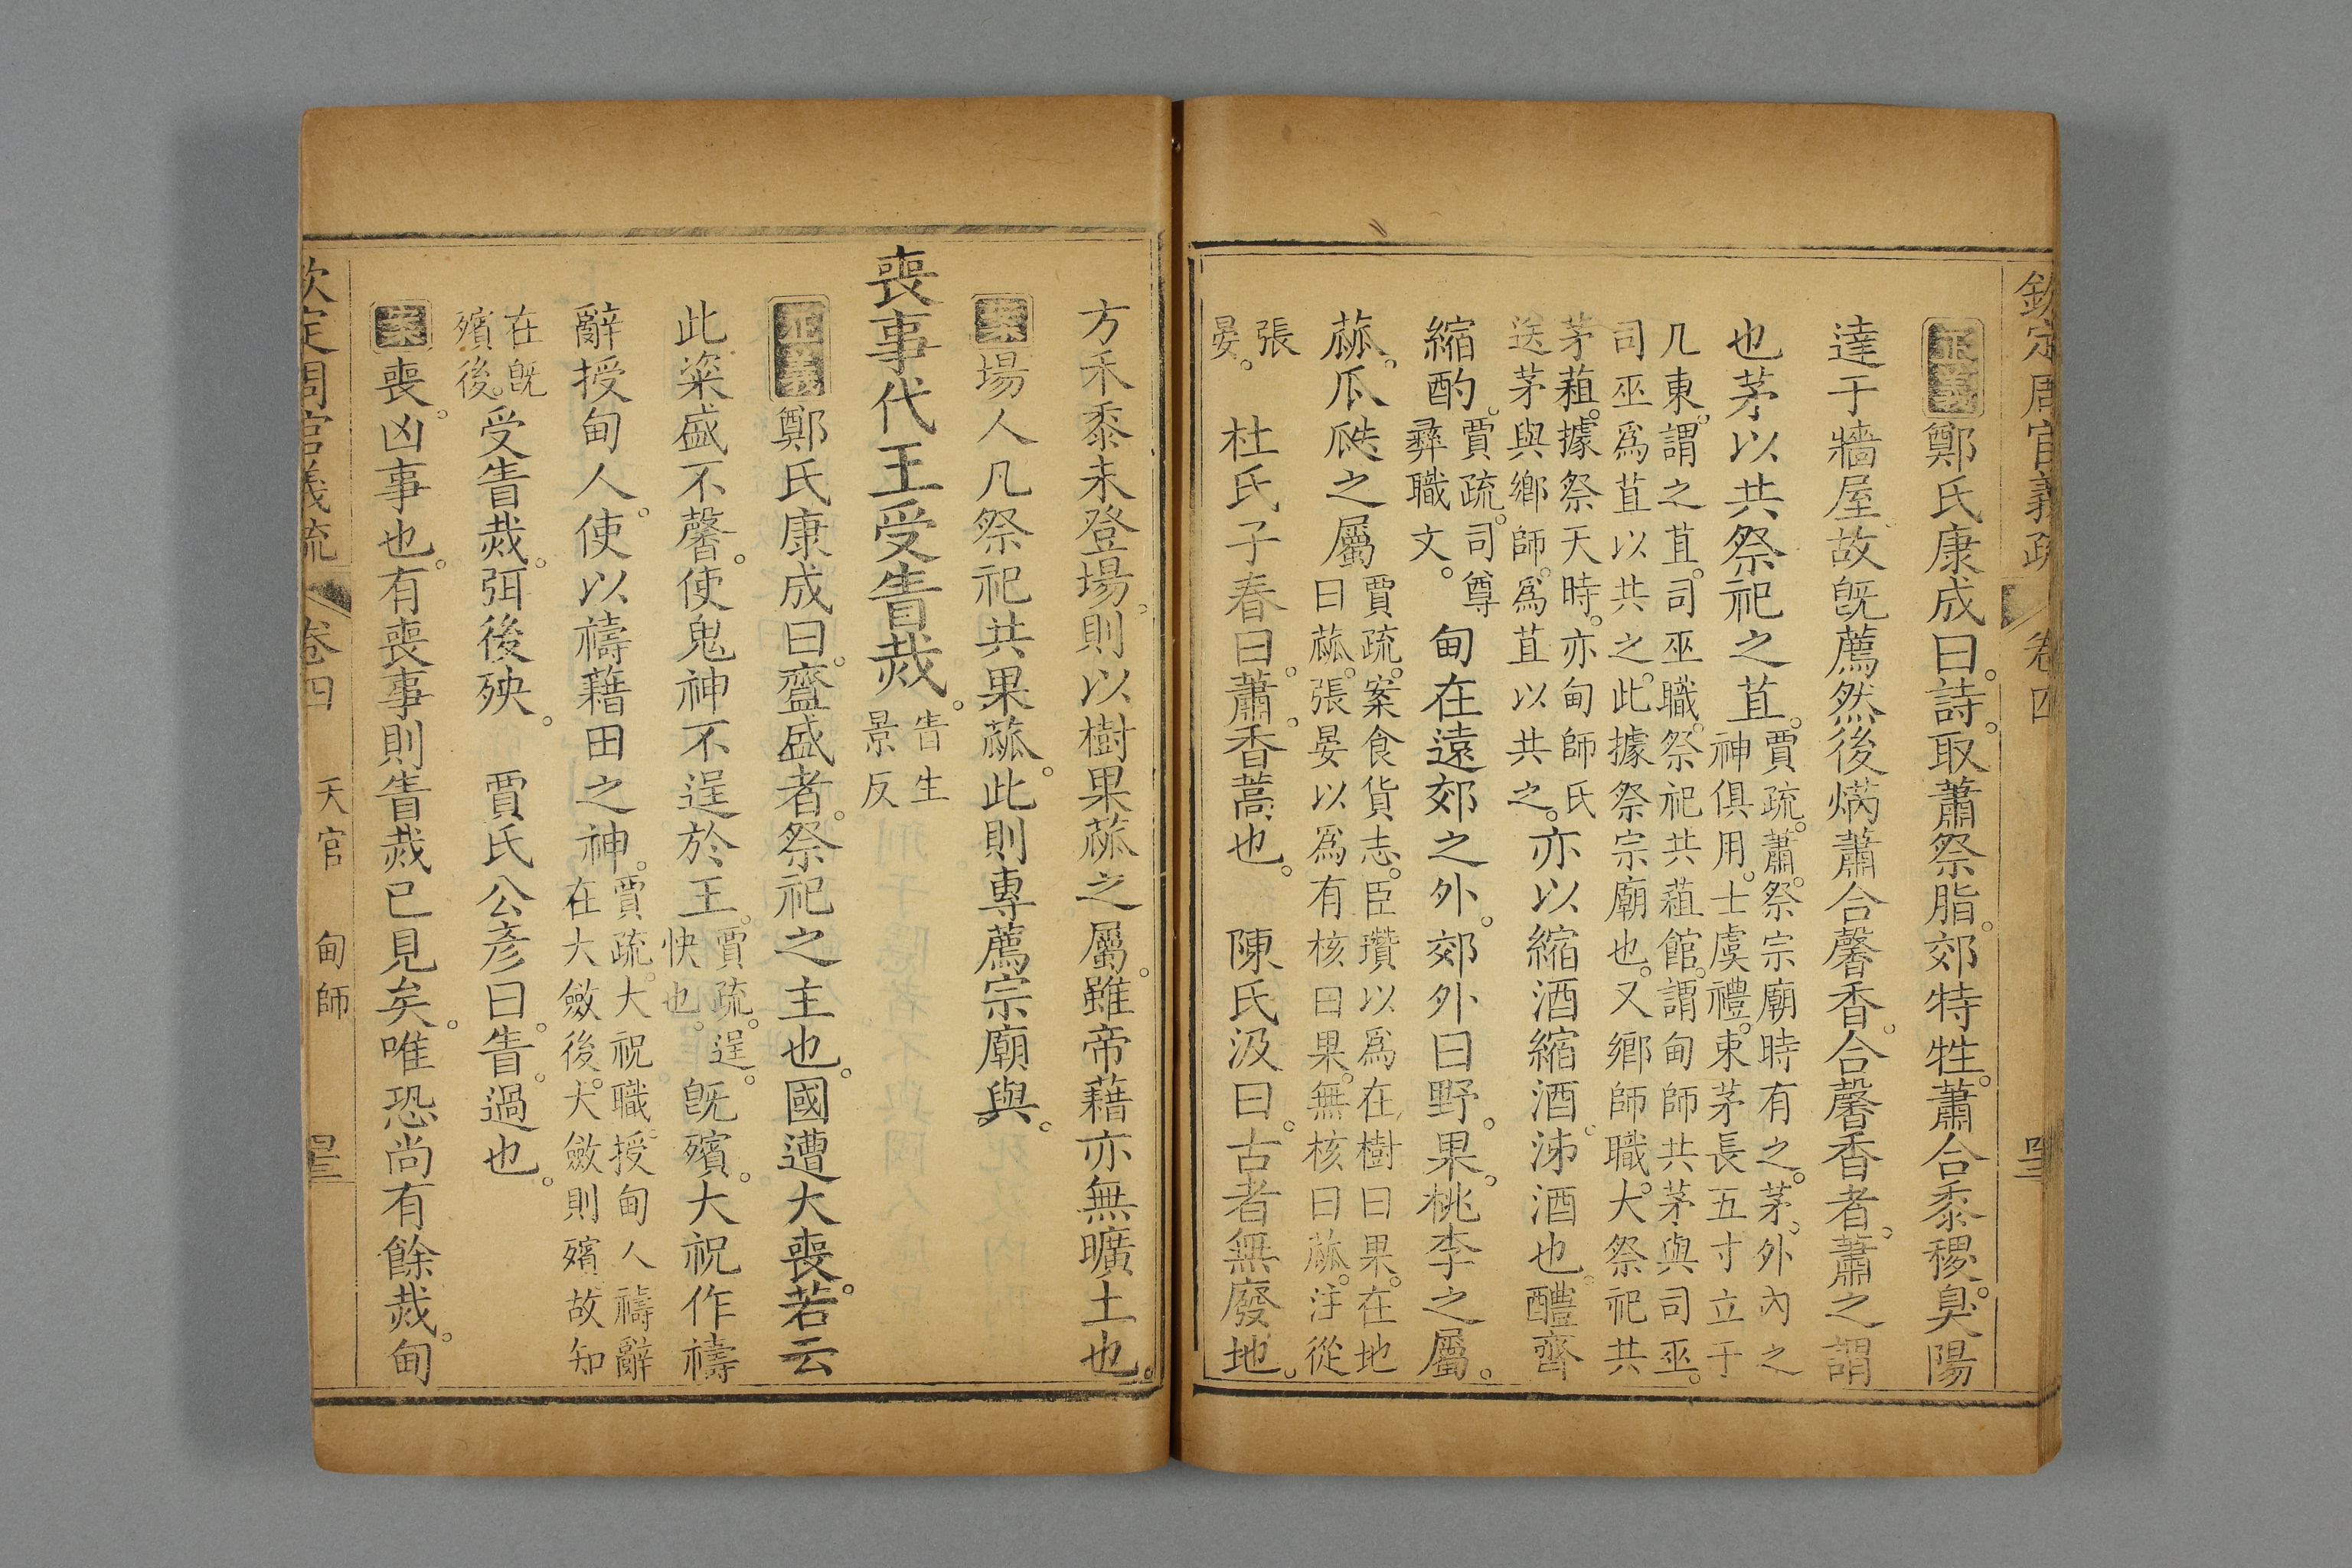 欽定周官義疏 卷四
正義鄭氏康成曰。詩。取蕭祭脂。郊特牲。蕭合黍稷。臭陽
達于牆屋。故旣薦然後焫蕭合馨香。合馨香者。蕭之謂
也茅以共祭祀之苴。賈疏。蕭。祭宗廟時有之。茅。外內之
神俱用。士虞禮。束茅長五寸立于
几東。謂之苴。司巫職。祭祀共蒩館。謂甸師共茅與司巫。
司巫爲苴以共之。此據祭宗廟也。又鄉師職。大祭祀共
茅蒩。據祭天時。亦甸師氏
送茅與鄉師。爲苴以共之。亦以縮酒縮酒。泲酒也。醴齊
縮酌。賈疏。司尊
彞職文。甸在遠郊之外。郊外曰野。果。桃李之屬。
蓏。瓜瓞之屬賈疏。案食貨志。臣瓚以爲在樹曰果。在地
曰蓏。張晏以爲有核曰果。無核曰蓏。注從
張
晏。杜氏子春曰。蕭。香蒿也。陳氏汲曰。古者無廢地。
方禾黍未登場。則以樹果蓏之屬。雖帝藉亦無曠土也。
案場人凡祭祀共果蓏。此則專薦宗廟與。
喪事代王受眚烖。眚生
景反
正義鄭氏康成曰。齍盛者。祭祀之主也。國遭大喪。若云
此粢盛不馨。使鬼神不逞於王。賈疏。逞。
快也。旣殯。大祝作禱
辭授甸人。使以禱藉田之神。賈疏。大祝職。授甸人禱辭
在大斂後。大斂則殯。故知
在旣
殯後。受眚烖。弭後殃。賈氏公彥曰。眚。過也。
案喪。凶事也。有喪事則眚烖已見矣。唯恐尚有餘烖。甸
欽定周官義疏 卷四 天官 甸師